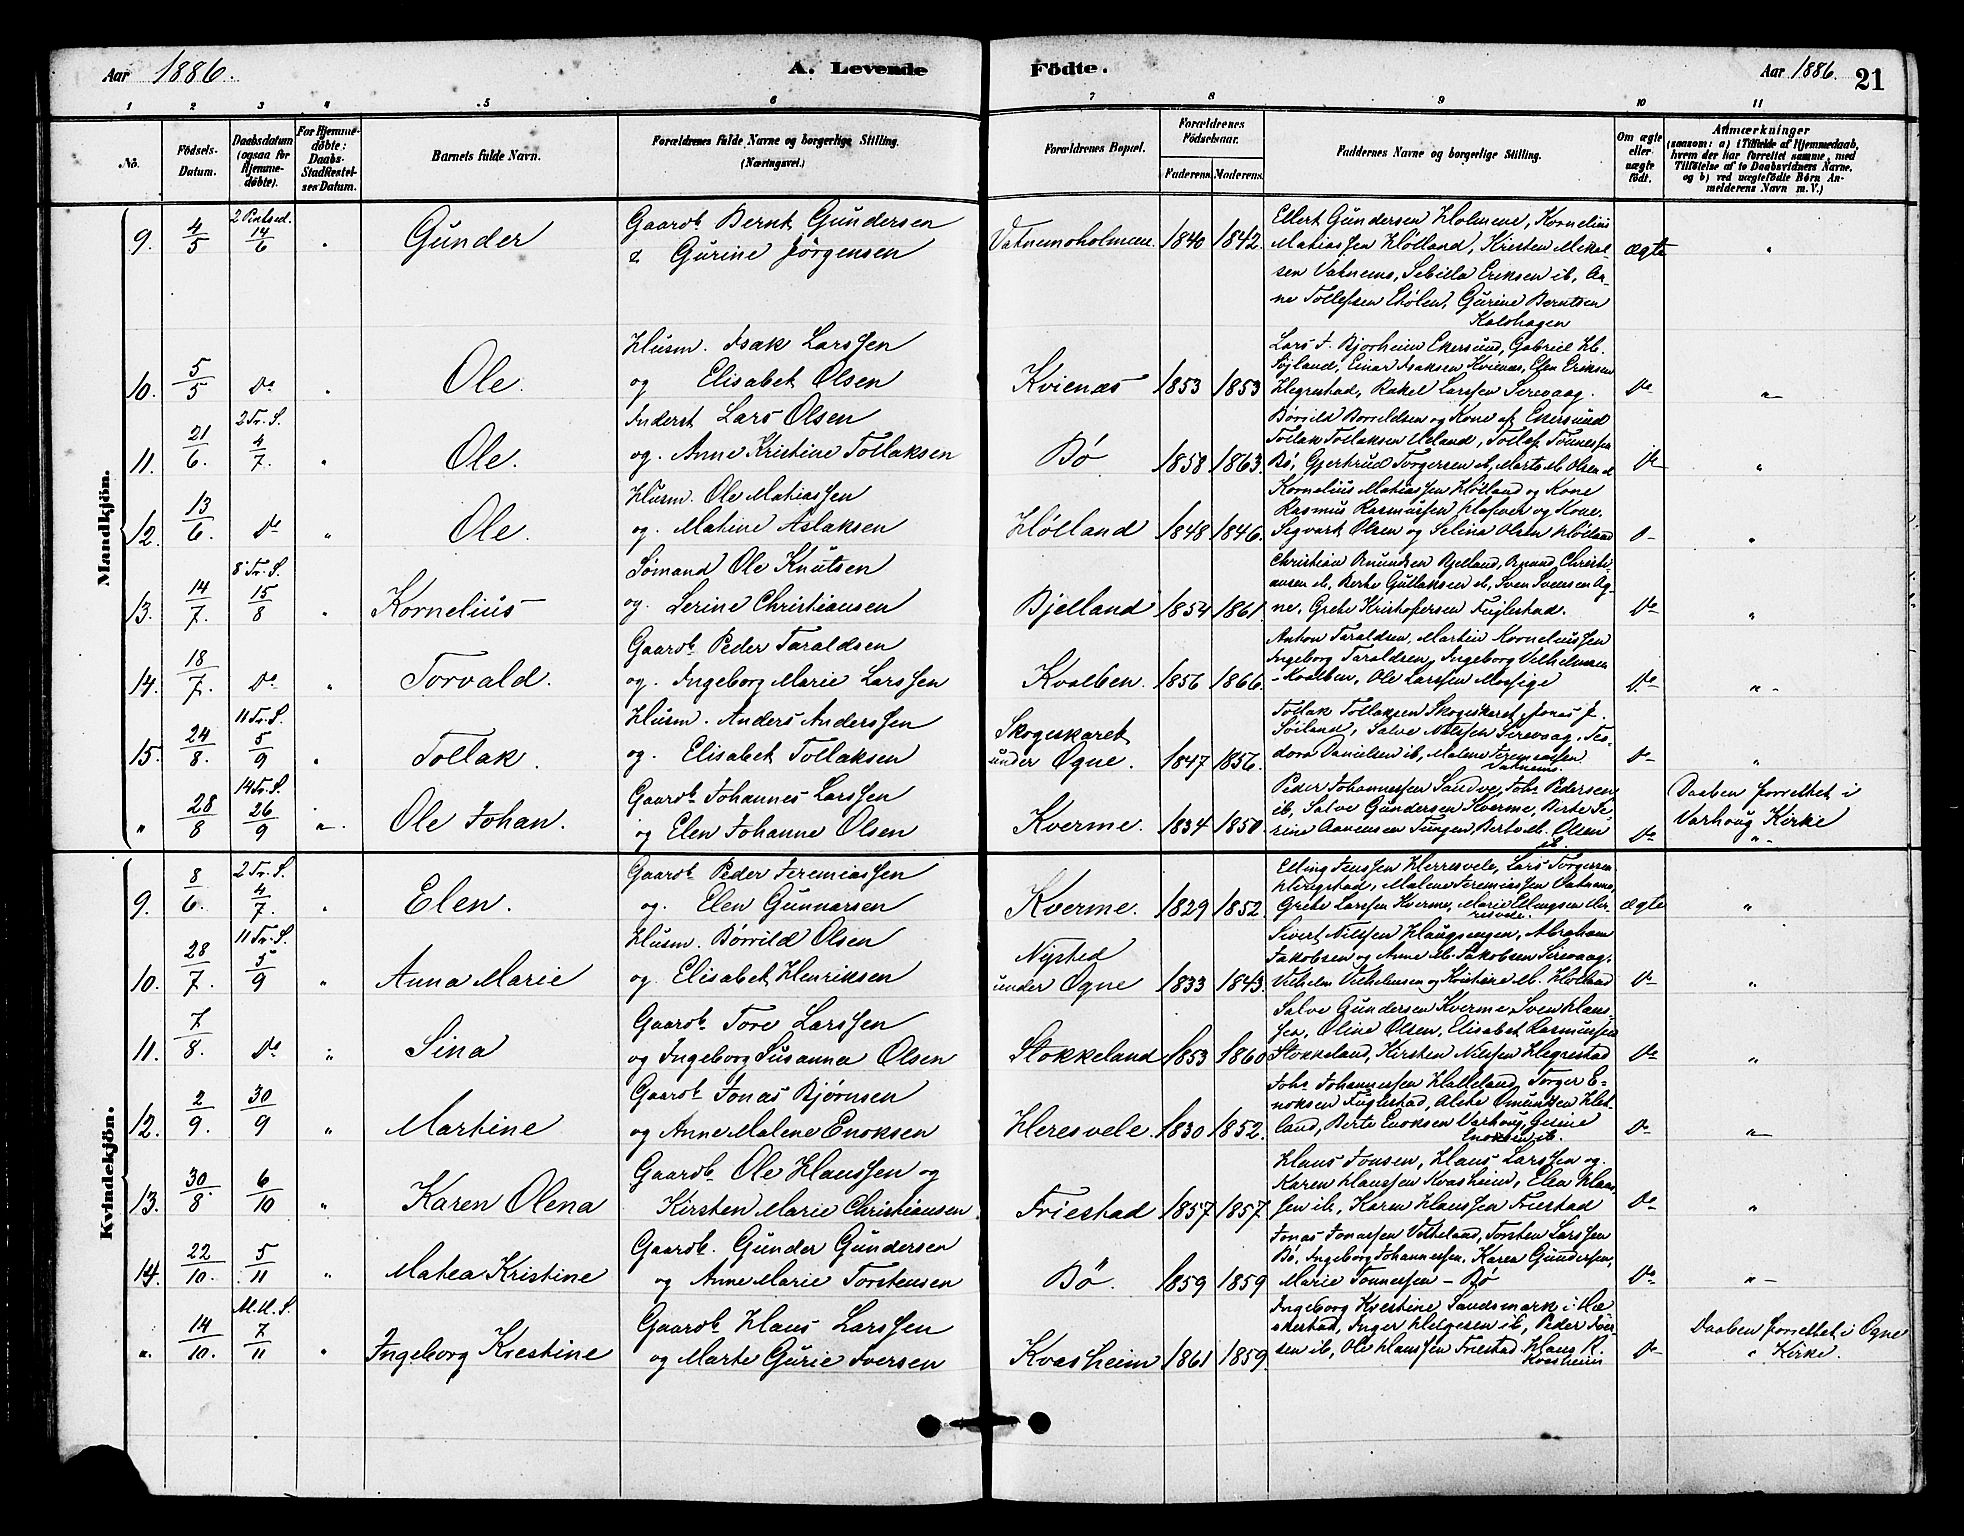 Aar 1886.
A. Levende
Födte.
Aar 1886.
21
1 2 3 4 5 6 7 8 9 10 11
No.
Födsels-Datum.
Daabsdatum (ogsaa for Hjemme-döbte).
For Hjemme-döbte: Daabs-Stadfæstel-ses Datum.
Barnets fulde Navn.
Forældrenes fulde Navne og borgerlige Stilling. (Næringsvei.)
Forældrenes Bopæl.
Forældrenes Födselsaar.
Faderens. Moderens.
Faddernes Navne og borgerlige Stilling.
Om ægte eller uægte födt.
Anmærkninger
(saasom: a) i Tilfælde af Hjemmedaab, hvem der har forrettet samme, med Tilföielse af to Daabsvidners Navne, og b) ved uægtefödte Börn An-melderens Navn m. V.)
Mandkjön.
9. 4/5 2 Pintsed. 14/6 " Gunder
Gaardb. Bernt Gundersen
& Gurine Jörgensen
Vatnemoholmene. 1840 1842.
Ellert Gundersen Holmene, Kornelius
Matiassen Hølland, Kristen Mikal-
sen Vatnemo, Sebilla Eriksen ib, Ar-
ne Tollefsen Stølen, Gurine Berntsen
Kalshagen
ægte "
10. 5/5 Do " Ole.
Husm. Isak Larssen
og Elisabet Olsen
Kvienæs 1853 1853
Lars I. Bjorheim Ekersund, Gabriel H.
Søiland, Einar Isaksen Kvienæs, Elen Eriksen
Hegrestad, Rakel Larssen Sirevaag.
Do "
11. 21/6. 2 Tr. S. 4/7. " Ole.
Inderst Lars Olsen
og. Anne Kristine Tollaksen
Bø 1858 1863.
Børvild Borrildsen og Kone af Ekersund
Tollak Tollaksen Ueland, Tollef Tønnessen
Bø, Gjertrud Torgersen ib, Marte M. Olsen ib
Do "
12. 13/6. Do " Ole.
Husm. Ole Matiassen
og. Matine Aslaksen
Hølland 1848 1846.
Kornelius Matiassen Hølland og Kone
Rasmus Rasmussen og Kone.
Segvart Olsen og Selina Olsen Hølland
D "
13. 14/7. 8 Tr. S. 15/8 " Kornelius
Sømand Ole Knutsen
og. Serine Christiansen
Bjelland 1854 1861.
Christian Omundsen Bjelland, Omund Christi-
ansen ib, Berte Gullaksen ib, Sven Svensen Og-
ne, Grete Kristofersen Fuglestad.
Do "
14. 18/7. Do " Torvald.
Gaardb. Peder Taraldsen
og. Ingeborg Marie Larssen
Kvalben. 1856 1866.
Anton Taraldsen, Martin Korneliussen
Ingeborg Taraldsen, Ingeborg Vilhelmsen
- Kvalben, Ole Larssen Mossige
Do "
15. 24/8. 11 Tr. S. 5/9 " Tollak.
Husm. Anders Anderssen
og. Elisabet Tollaksen
Skogeskaret
under Ogne. 1847 1856.
Tollak Tollaksen Skogeskaret, Jonas J.
Søiland, Salve Nilssen Sirevaag, Teo-
dora Danielsen ib, Malene Jeremiassen
Vatnemo.
D "
" 28/8 14 Tr. S. 26/9 " Ole Johan.
Gaardb. Johannes Larssen
og Elen Johanne Olsen
Kverme. 1834 1850.
Peder Johannessen Sandve, Johs Pedersen
ib, Salve Gundersen Kverme, Berte Se-
rine Aanensen Tungen, Berte M. Olsen
ib.
Do
Daaben forrettet i
Varhoug Kirke
Kvindekjön.
9. 8/6. 2 Tr. S. 4/7. " Elen.
Gaardb. Peder Jeremiassen
og. Elen Gunnarsen
Kverme. 1829 1852.
Elling Jenssen Herresvele, Lars Torgersen
Hegrestad, Malene Jeremiassen Vatnemo,
Grete Larssen Kverme, Marie Ellingsen Her-
resvele.
ægte "
10. 28/7. 11 Tr. S. 5/9 " Anna Marie
Husm. Børrild Olsen
og. Elisabet Henriksen
Nysted
under Ogne 1833 1843.
Sivert Nilssen Haugsengen, Abraham
Jakobsen og Anne M. Jakobsen Sirevaag,
Vilhelm Vilhelmsen og Kristine M. Hølland
Do "
11. 7/8. Do " Sina
Gaardb. Tore Larssen
og Ingeborg Susanna Olsen
Stokkeland 1853 1860
Salve Gundersen Kverme, Sven Hans-
sen, Oline Olsen, Elisabet Rasmussen
Stokkeland, Kirsten Nilssen Hegrestad
Do "
12. 2/9. 30/9 " Martine
Gaardb. Jonas Bjørnsen
og Anne Malene Enoksen
Heresvele 1830 1852.
Johs Johannessen Halleland, Torger E-
noksen Fuglestad, Alete Omundsen Het-
land, Berte Enoksen Varhoug, Gurine
Enoksen ib.
Do "
13. 30/8 6/10 " Karen Olena
Gaardb. Ole Hanssen og
Kirsten Marie Christiansen
Friestad 1857 1857.
Hans Jonsen, Hans Larssen og
Karen Hanssen Kvasheim, Elen Hans-
sen ib, Karen Hanssen Friestad
Do "
14. 22/10. 5/11 " Matea Kristine
Gaardb. Gunder Gundersen
og Anne Marie Torstensen
Bø. 1859 1859
Jonas Jonassen Vetteland, Torsten Larssen
Bø, Ingeborg Johannessen, Karen Gundersen,
Marie Tønnessen - Bø
Do "
" 14/10. M. M. S. 7/11 " Ingeborg Krestine
Gaardb. Hans Larssen
og Marte Gurie Iversen
Kvasheim 1861 1859.
Ingeborg Krestine Sandsmark i He-
skestad, Inger Helgesen ib, Peder Iver-
sen ib, Ole Hanssen Friestad Hans R.
Kvasheim
Do
Daaben forrettet i Ogne
" Kirke.